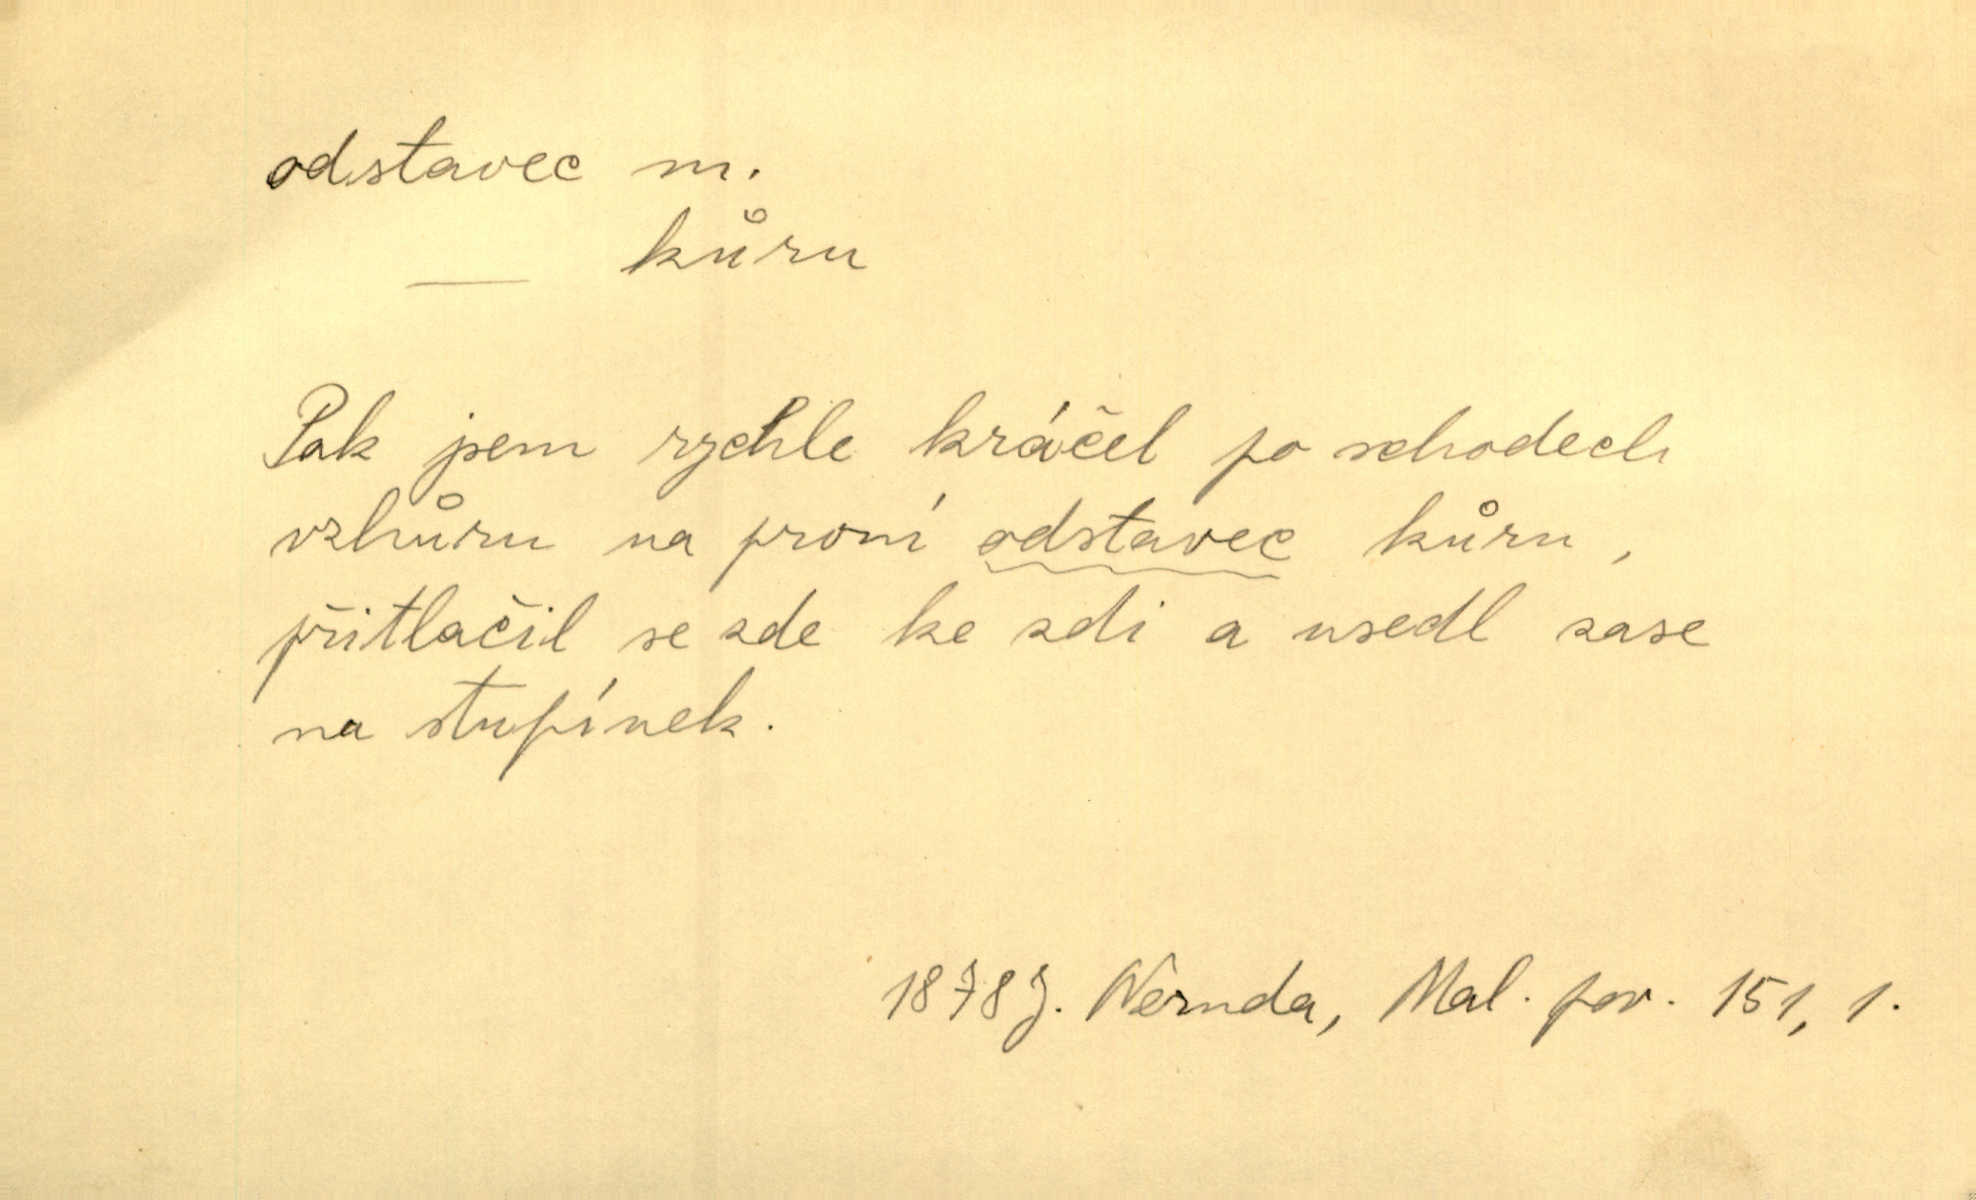 odstavec m.
— kůru
Pak jsem rychle kráčel po schodech
vzhůru na první odstavec kůru,
přitlačil se zde ke zdi a usedl zase
na stupínek.
1878 J. Neruda, Mal. pov. 151, 1.